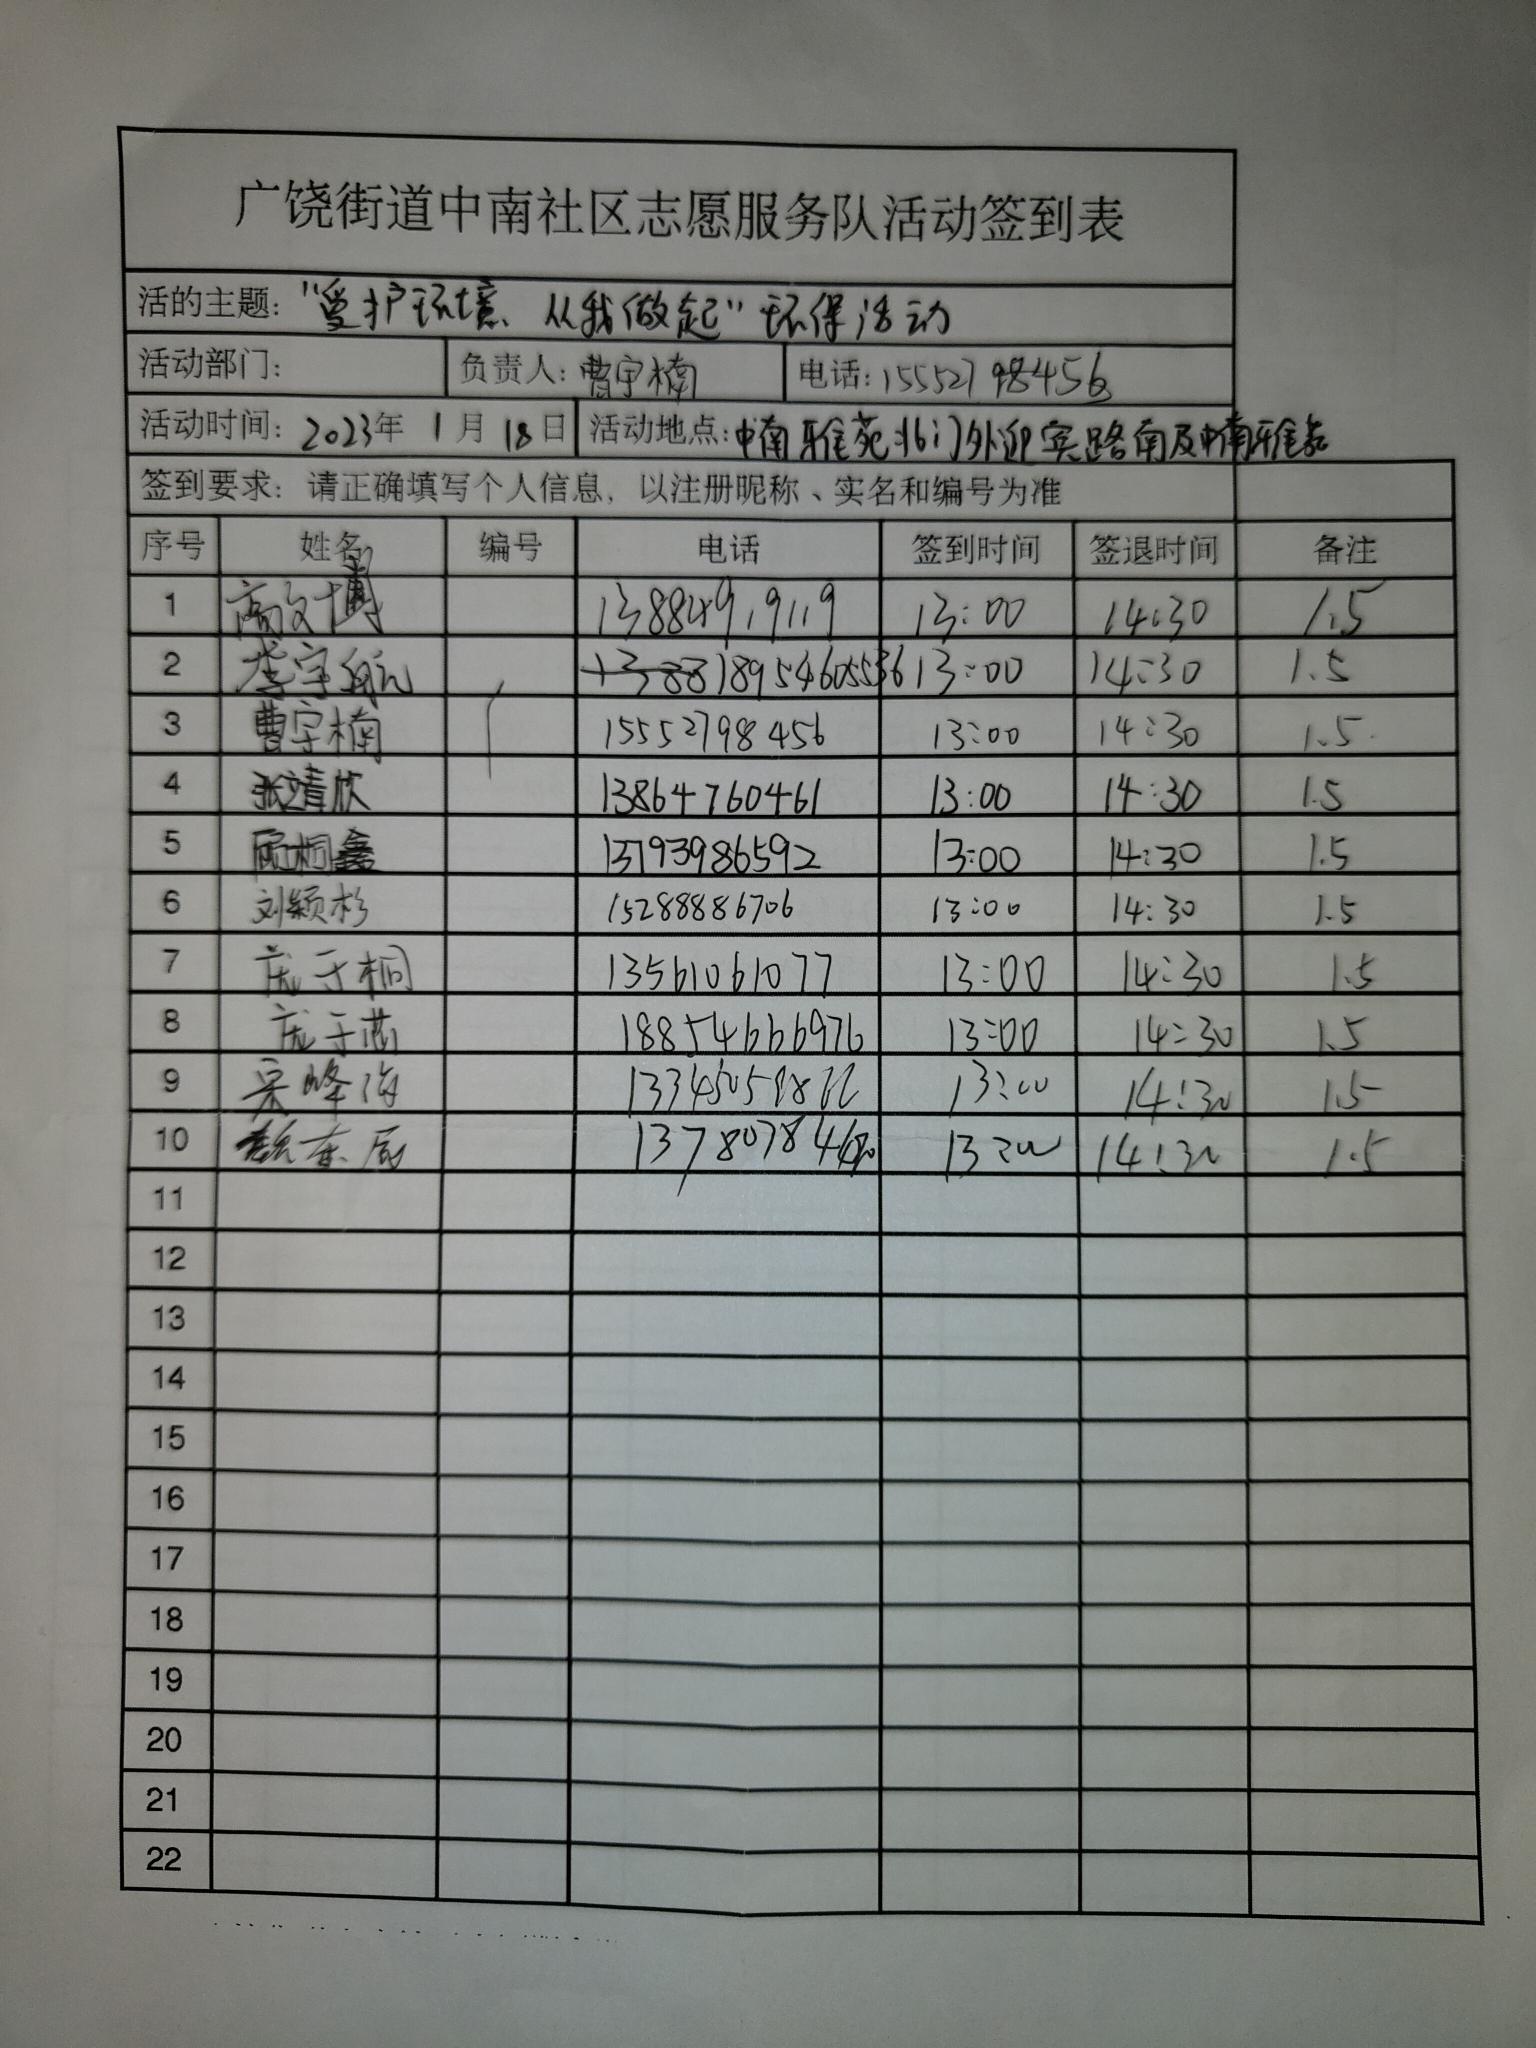 广饶街道中南社区志愿服务队活动签到表
活的主题：“爱护环境、从我做起”环保活动
活动部门： 负责人：曹宇楠 电话：15552798456
活动时间：2023年 1月 18日 活动地点：中南雅苑北门外迎宾路南及中南雅苑
签到要求：请正确填写个人信息，以注册昵称、实名和编号为准
序号 姓名 编号 电话 签到时间 签退时间 备注
1 高文博 13884919119 13:00 14:30 1.5
2 李宇航 18954605536 13:00 14:30 1.5
3 曹宇楠 15552798456 13:00 14:30 1.5
4 张靖欣 13864760461 13:00 14:30 1.5
5 顾桐鑫 13793986592 13:00 14:30 1.5
6 刘颖杉 15288886706 13:00 14:30 1.5
7 庞于桐 13561061077 13:00 14:30 1.5
8 庞于芯 18854666976 13:00 14:30 1.5
9 13:00 14:30 1.5
10 13:00 14:30 1.5
11
12
13
14
15
16
17
18
19
20
21
22